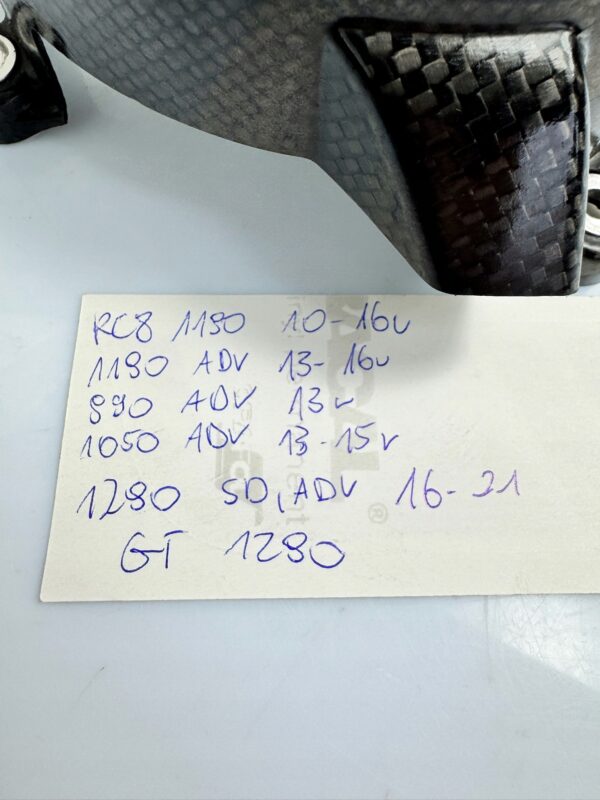 RC8 1190 10-16v
1190 ADV 13-16v
990 ADV 13v
1050 ADV 13-15v
1290 SD, ADV 16-21
GT 1290